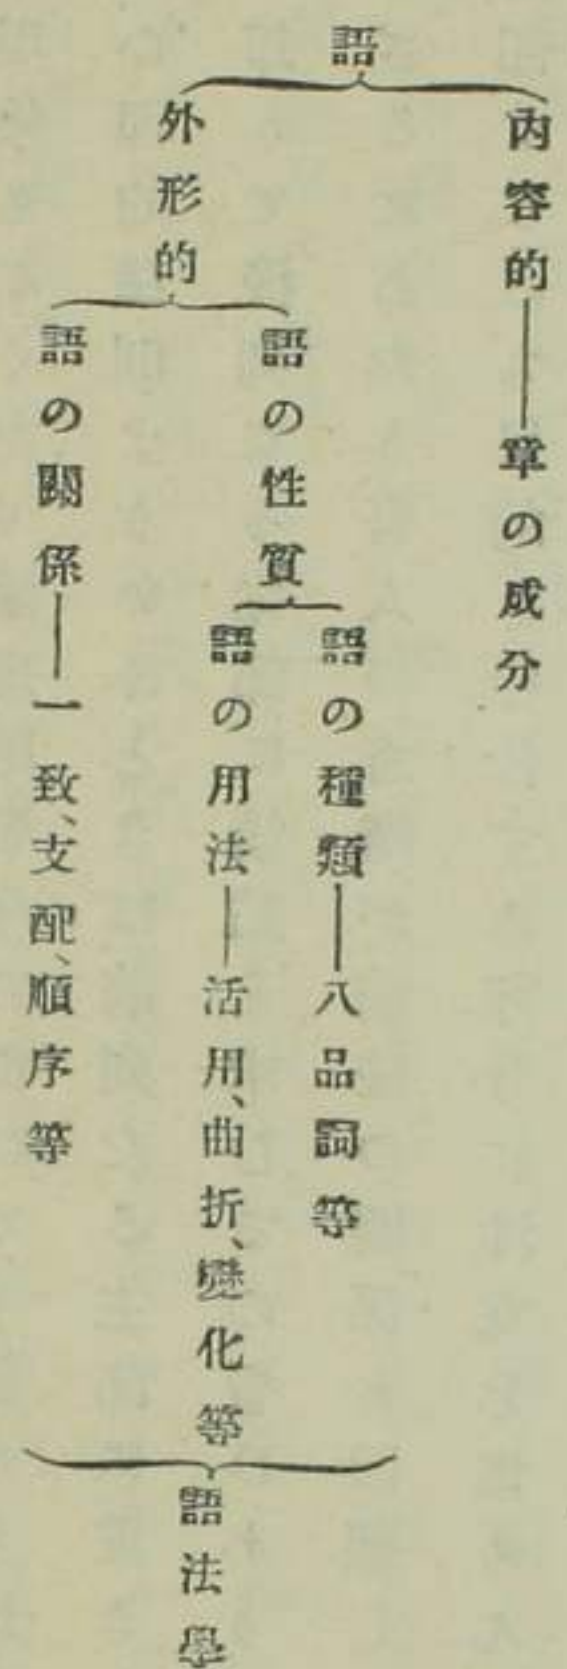 語
內容的――章の成分
外形的
語の性質
語の種類――八品詞等
語の用法――活用、曲折、變化等
語の關係――一致、支配、順序等
語法學